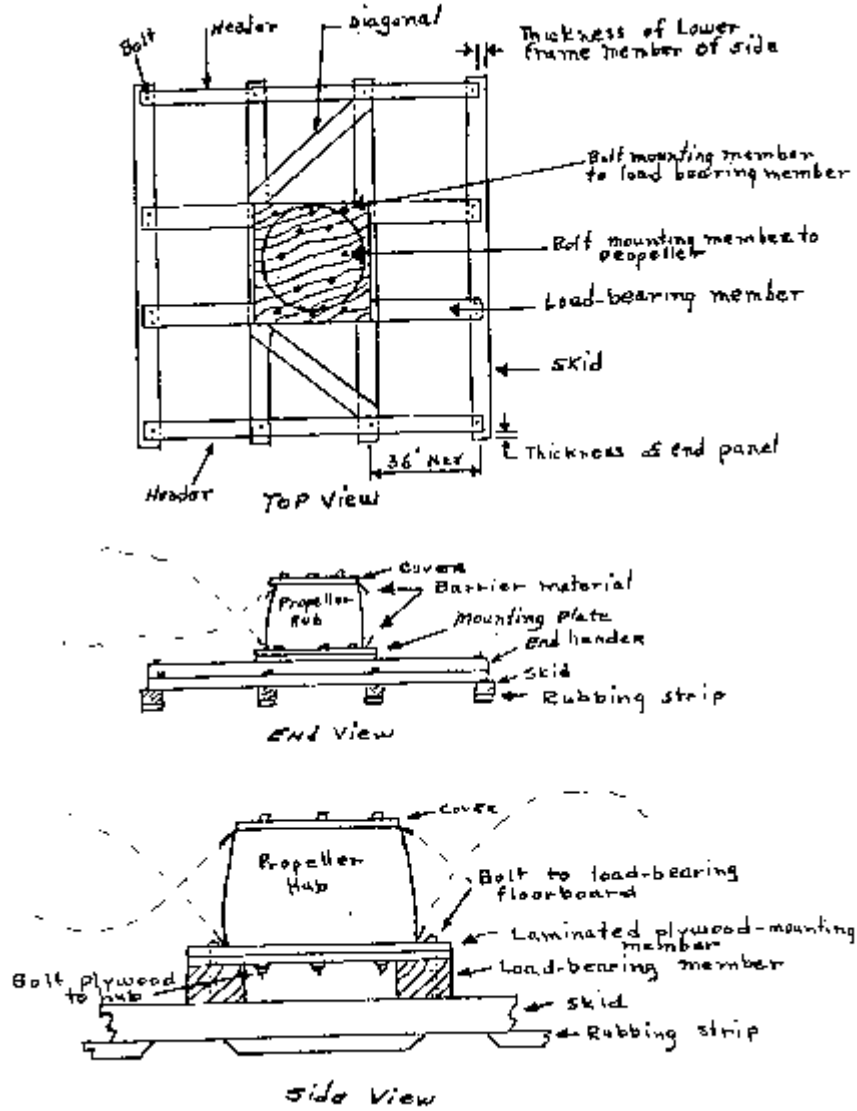 Bolt
Header
Diagonal
Thickness of Lower
frame member of side
Bolt mounting member
to load bearing member
Bolt mounting member to
propeller
Load-bearing member
Skid
36"
Thickness of end panel
Header
Top View
Covers
Barrier material
Propeller
Hub
Mounting plate
End header
Skid
Rubbing strip
End View
Cover
Propeller
Hub
Bolt to load-bearing
floorboard
Laminated plywood-mounting
member
Bolt plywood
to hub
Load-bearing member
Skid
Rubbing strip
Side View